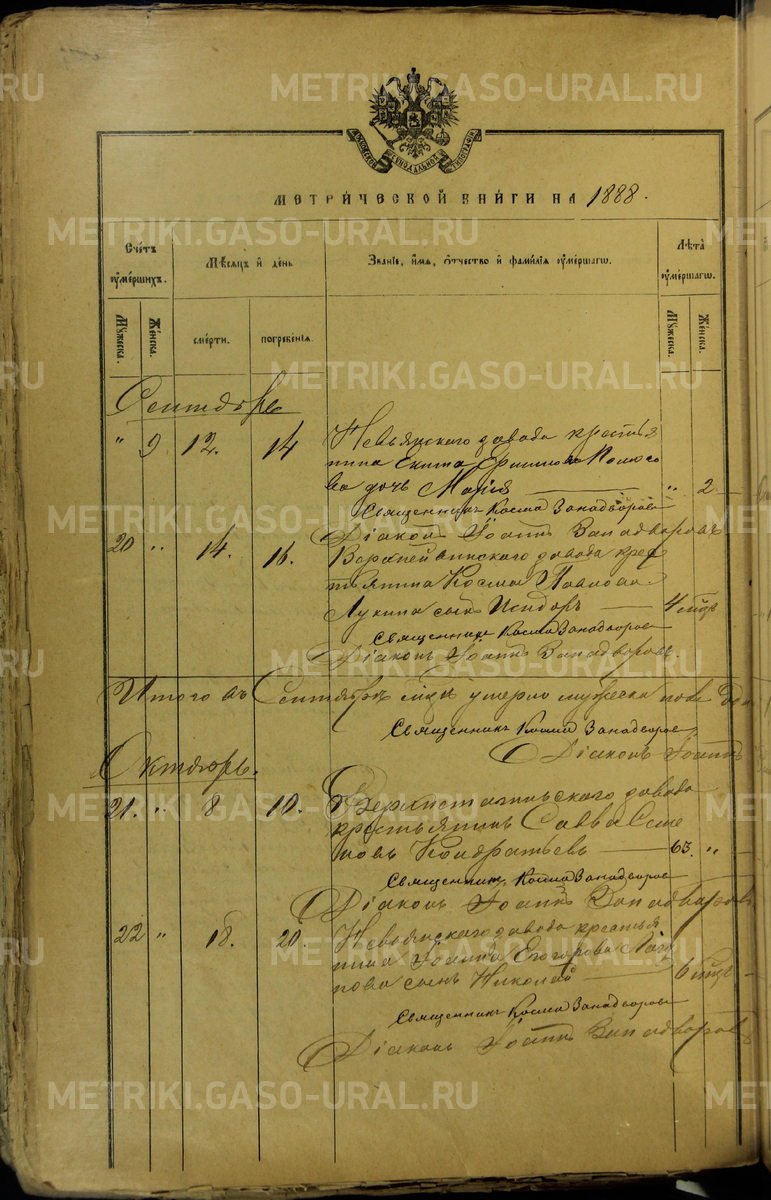 МОСКОВСКОЙ СѴНОДАЛЬНОЙ ТИПОГРАФІИ
МЕТРИ́ЧЕСКОЙ КНИ́ГИ НА 1888.
Сче́тъ ᲂу҆ме́ршихъ.
Мꙋ́жеска. Же́нска.
Мѣ́сѧцъ и҆ де́нь
сме́рти. погребе́нїѧ.
Зва́нїе, и҆́мѧ, ѻ҆́тчество и҆ фами́лїѧ ᲂу҆ме́ршагѡ.
Лѣ̑та ᲂу҆ме́ршагѡ.
Мꙋ́жеска. Же́нска.
Сентябрь
" 9 12. 14 Невьянскаго завода крестья
нина
ва дочь Марія — " 2 —
Священникъ Косма Занадворовъ
Діаконъ Іоаннъ Занадворовъ
20 " 14. 16. Верхнейвинскаго завода крес
тьянина Космы Павлова
Лукина сынъ Исидоръ — 4
Священникъ Косма Занадворовъ
Діаконъ Іоаннъ Занадворовъ.
Итого въ Сентябрѣ м-цѣ умерло мужеска пола
Священникъ Косма Занадворов
Діаконъ Іоаннъ
Октябрь.
21. " 8 10. Верхнетагильскаго завода
крестьянинъ Савва Семе
новъ Кондратьевъ — 63. " —
Священникъ Косма Занадворовъ
Діаконъ Іоаннъ Занадворовъ
22 " 18. 20. Невьянскаго завода крестья
нина Іоанна Егорова
нова сынъ Николай 6
Священникъ Косма Занадворовъ
Діаконъ Іоаннъ Занадворовъ
METRIKI.GASO-URAL.RU